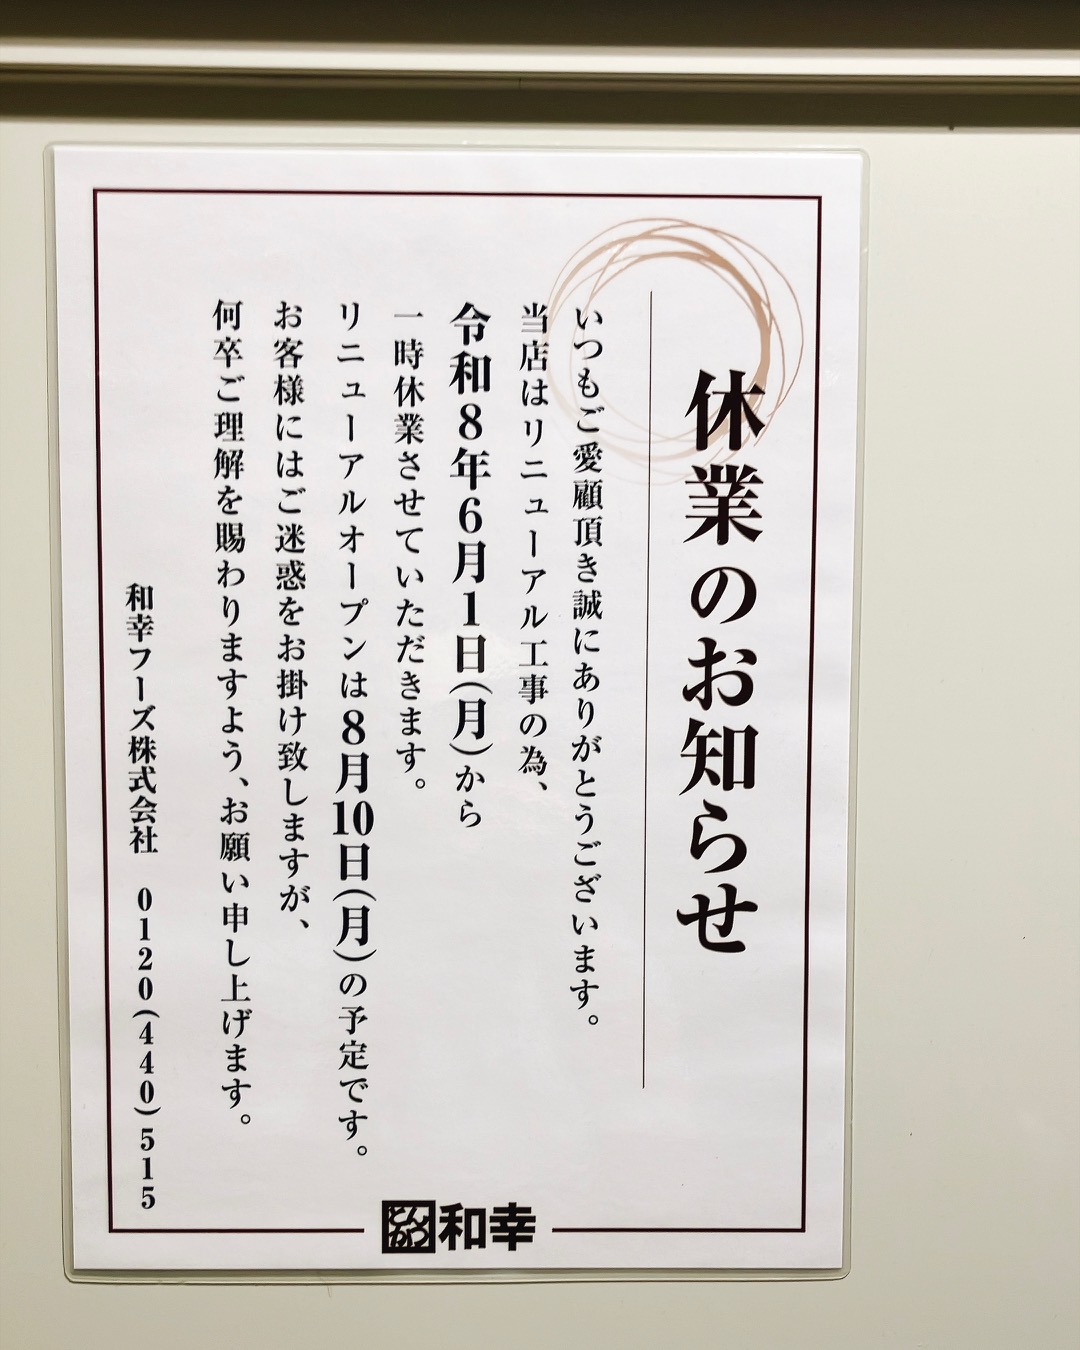 休業のお知らせ
いつもご愛顧頂き誠にありがとうございます。
当店はリニューアル工事の為、
令和8年6月1日(月)から
一時休業させていただきます。
リニューアルオープンは8月10日(月)の予定です。
お客様にはご迷惑をお掛け致しますが、
何卒ご理解を賜わりますよう、お願い申し上げます。
和幸フーズ株式会社 0120(440)515
とんかつ和幸